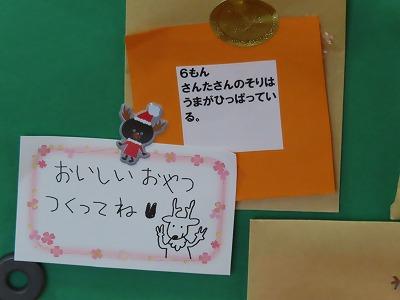 6もん
さんたさんのそりは
うまがひっぱってい
る。
おいしい おやつ
つくってね